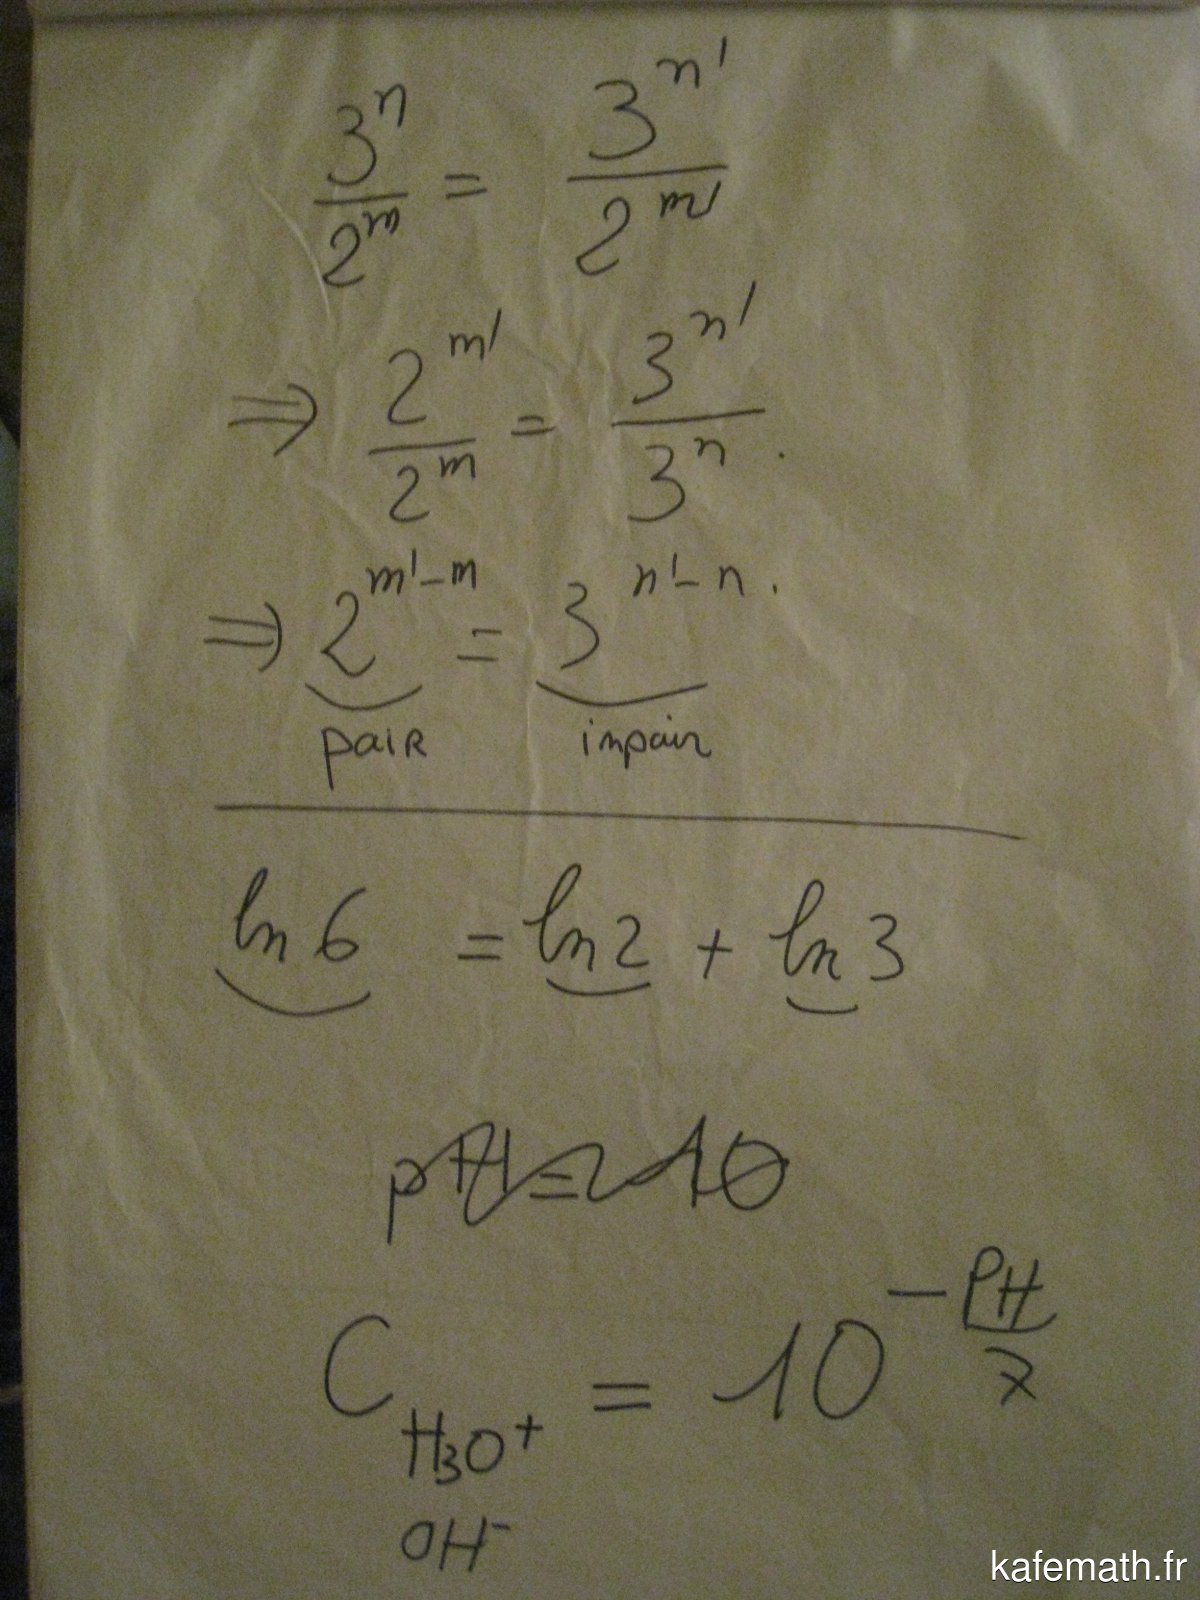 3^n / 2^m = 3^n' / 2^m'
⇒ 2^m' / 2^m = 3^n' / 3^n .
⇒ 2^m'-m = 3^n'-n .
pair impair
ln 6 = ln 2 + ln 3
pH = 10
C_H3O+ = 10^-PH/7
OH-
kafemath.fr